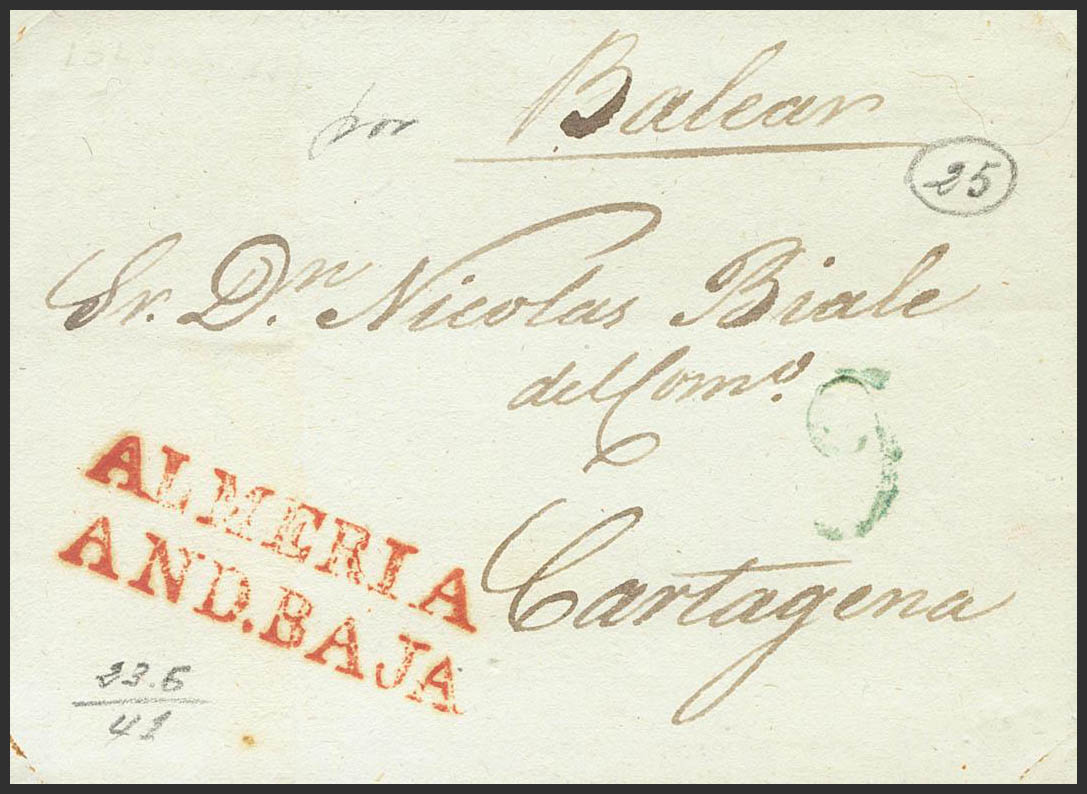 por Balear
25
Sr. Dn. Nicolas Biale
del Como.
9
ALMERIA
AND.BAJA
Cartagena
23.6
41